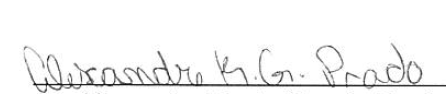 Alexandre K. Gr. Prado